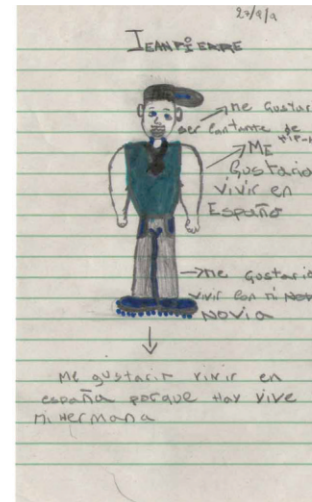 JEANPIERRE
Me Gustar
ser Cantante de
ME
Gustaria
vivir en
España
Me Gustaria
vivir con mi NOV
NOVIA
Me gustarir vivir en
españa porque Hay vive
Mi Hermana